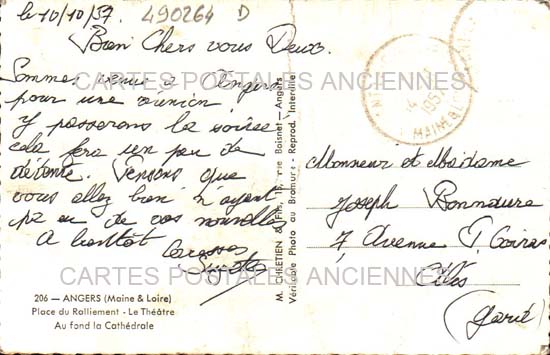 le 10/10/57. 490264 D
Bien Chers vous Deux.
Sommes venus à Angers
pour une réunion
y passerons la soirée
cela fera un peu de
détente. Pensons que
vous allez bien n'ayant
pas eu de vos nouvelles
A bientôt
206 — ANGERS (Maine & Loire)
Place du Ralliement - Le Théâtre
Au fond la Cathédrale
M. CHRETIEN & Fils, rue Boisnet - Angers
Véritable Photo au Bromure - Reprod. Interdite
1957
MAINE
Monsieur et Madame
Joseph Bonnaure
7, Avenue
(Gard)
CARTES POSTALES ANCIENNES
CARTES POSTALES ANCIENNES